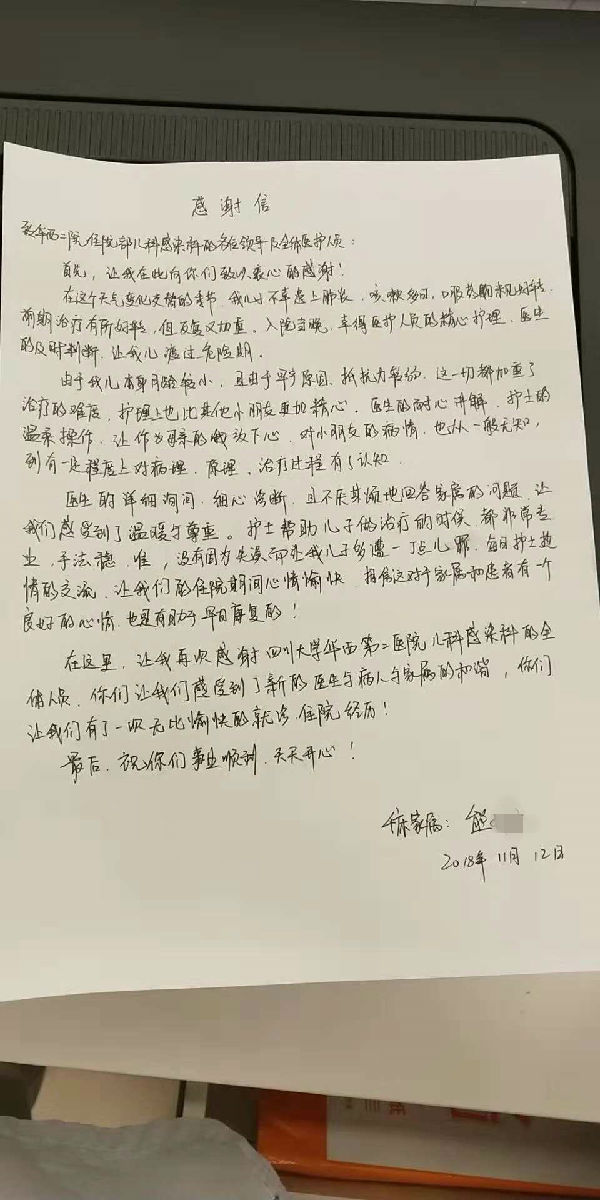 感谢信
华西二院住院部儿科感染科的各位领导及全体医护人员:
首先,让我在此向你们致以衷心的感谢!
在这个天气变化交替的季节,我儿子不幸患上肺炎,咳嗽多日,口服药物未见好转,
前期治疗有所好转,但反复又加重。入院当晚,幸得医护人员的精心护理,医生
的及时判断,让我儿渡过危险期。
由于我儿本身月龄较小,且由于早产原因,抵抗力较弱,这一切都加重了
治疗的难度,护理上也比其他小朋友更加精心。医生的耐心讲解,护士的
温柔操作,让作为母亲的我放下心,对小朋友的病情,也从一般无知,
到有一定程度上对病理、原理、治疗过程有了认知。
医生的详细询问,细心诊断,且不厌其烦地回答家属的问题,让
我们感受到了温暖与尊重。护士帮助儿子做治疗的时候,都非常专
业,手法稳、准,没有因为失误而让我儿子多遭一丁点儿罪,每日护士热
情的交流,让我们的住院期间心情愉快,相信这对于家属和患者有一个
良好的心情,也是有助于早日康复的!
在这里,让我再次感谢四川大学华西第二医院儿科感染科的全
体人员,你们让我们感受到了新的医生与病人与家属的和谐,你们
让我们有了一次无比愉快的就诊、住院经历!
最后,祝你们事业顺利,天天开心!
床家属:熊
2018年11月12日